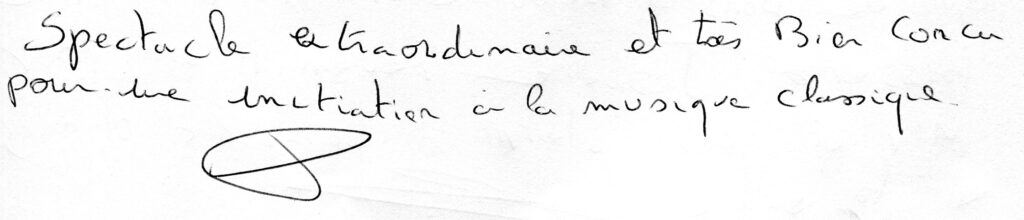 Spectacle extraordinaire et très Bien Concu
pour une initiation à la musique classique.